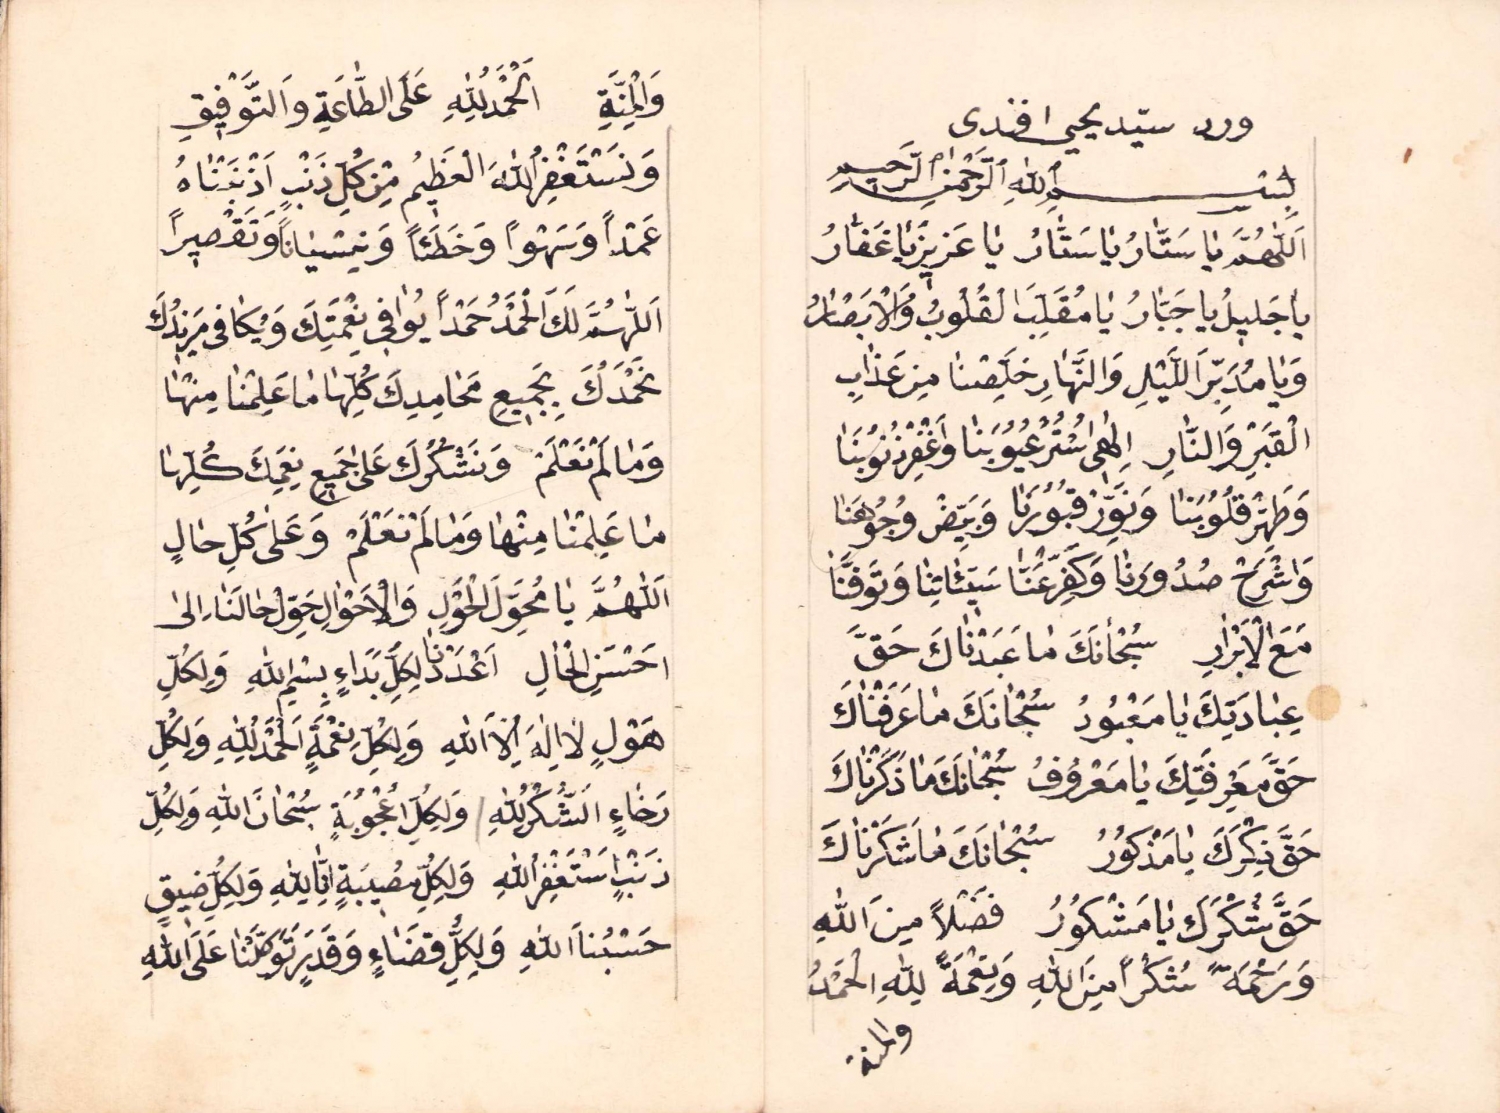 ورد سيّد يحيى افندى
بِسْمِ اللهِ الرَّحْمٰنِ الرَّحِيمِ
اَللّٰهُمَّ يَا سَتَّارُ يَا سَتَّارُ يَا عَزِيزُ يَا غَفَّارُ
يَا جَلِيلُ يَا جَبَّارُ يَا مُقَلِّبَ الْقُلُوبُ وَالْاَبْصَارُ
وَيَا مُدَبِّرَ اللَّيْلِ وَالنَّهَارِ خَلِّصْنَا مِنْ عَذَابِ
الْقَبْرِ وَالنَّارِ اِلٰهِى اسْتُرْ عُيُوبَنَا وَاغْفِرْ ذُنُوبَنَا
وَطَهِّرْ قُلُوبَنَا وَنَوِّرْ قُبُورَنَا وَبَيِّضْ وُجُوهَنَا
وَاشْرَحْ صُدُورَنَا وَكَفِّرْ عَنَّا سَيِّئَاتِنَا وَتَوَفَّنَا
مَعَ الْاَبْرَارِ سُبْحَانَكَ مَا عَبَدْنَاكَ حَقَّ
عِبَادَتِكَ يَا مَعْبُودُ سُبْحَانَكَ مَا عَرَفْنَاكَ
حَقَّ مَعْرِفَتِكَ يَا مَعْرُوفُ سُبْحَانَكَ مَا ذَكَرْنَاكَ
حَقَّ ذِكْرِكَ يَا مَذْكُورُ سُبْحَانَكَ مَا شَكَرْنَاكَ
حَقَّ شُكْرِكَ يَا مَشْكُورُ فَضْلاً مِنَ اللهِ
وَرَحْمَةً شُكْراً مِنَ اللهِ وَنِعْمَةً لِلّٰهِ الْحَمْدُ
والمنة
وَالْمِنَّةِ اَلْحَمْدُ لِلّٰهِ عَلَى الطَّاعَةِ وَالتَّوْفِيقِ
وَنَسْتَغْفِرُ اللهَ الْعَظِيمُ مِنْ كُلِّ ذَنْبٍ اَذْنَبْنَاهُ
عَمْداً وَسَهْواً وَخَطَئاً وَنِسْيَاناً وَتَقْصِيراً
اَللّٰهُمَّ لَكَ الْحَمْدُ حَمْداً يُوَافِى نِعْمَتِكَ وَيُكَافِى مَزِيدُكَ
نَحْمَدُكَ بِجَمِيعِ مَحَامِدِكَ كُلِّهَا مَا عَلِمْنَا مِنْهَا
وَمَا لَمْ نَعْلَمْ وَنَشْكُرُكَ عَلَى جَمِيعِ نِعَمِكَ كُلِّهَا
مَا عَلِمْنَا مِنْهَا وَمَا لَمْ نَعْلَمْ وَعَلَى كُلِّ حَالٍ
اَللّٰهُمَّ يَا مُحَوِّلَ الْحَوْلِ وَالْاَحْوَالِ حَوِّلْ حَالَنَا اِلَى
اَحْسَنِ الْحَالِ اَعْدَدْنَا لِكُلِّ بَدَاءٍ بِسْمِ اللهِ وَلِكُلِّ
هَوْلٍ لَا اِلٰهَ اِلَّا اللهِ وَلِكُلِّ نِعْمَةٍ اَلْحَمْدُ لِلّٰهِ وَلِكُلِّ
رَخَاءٍ اَلشُّكْرُ لِلّٰهِ وَلِكُلِّ اُعْجُوبَةٍ سُبْحَانَ اللهِ وَلِكُلِّ
ذَنْبٍ اَسْتَغْفِرُ اللهِ وَلِكُلِّ مُصِيبَةٍ اِنَّا لِلّٰهِ وَلِكُلِّ ضِيقٍ
حَسْبُنَا اللهِ وَلِكُلِّ قَضَاءٍ وَقَدَرٍ تَوَكَّلْنَا عَلَى اللهِ